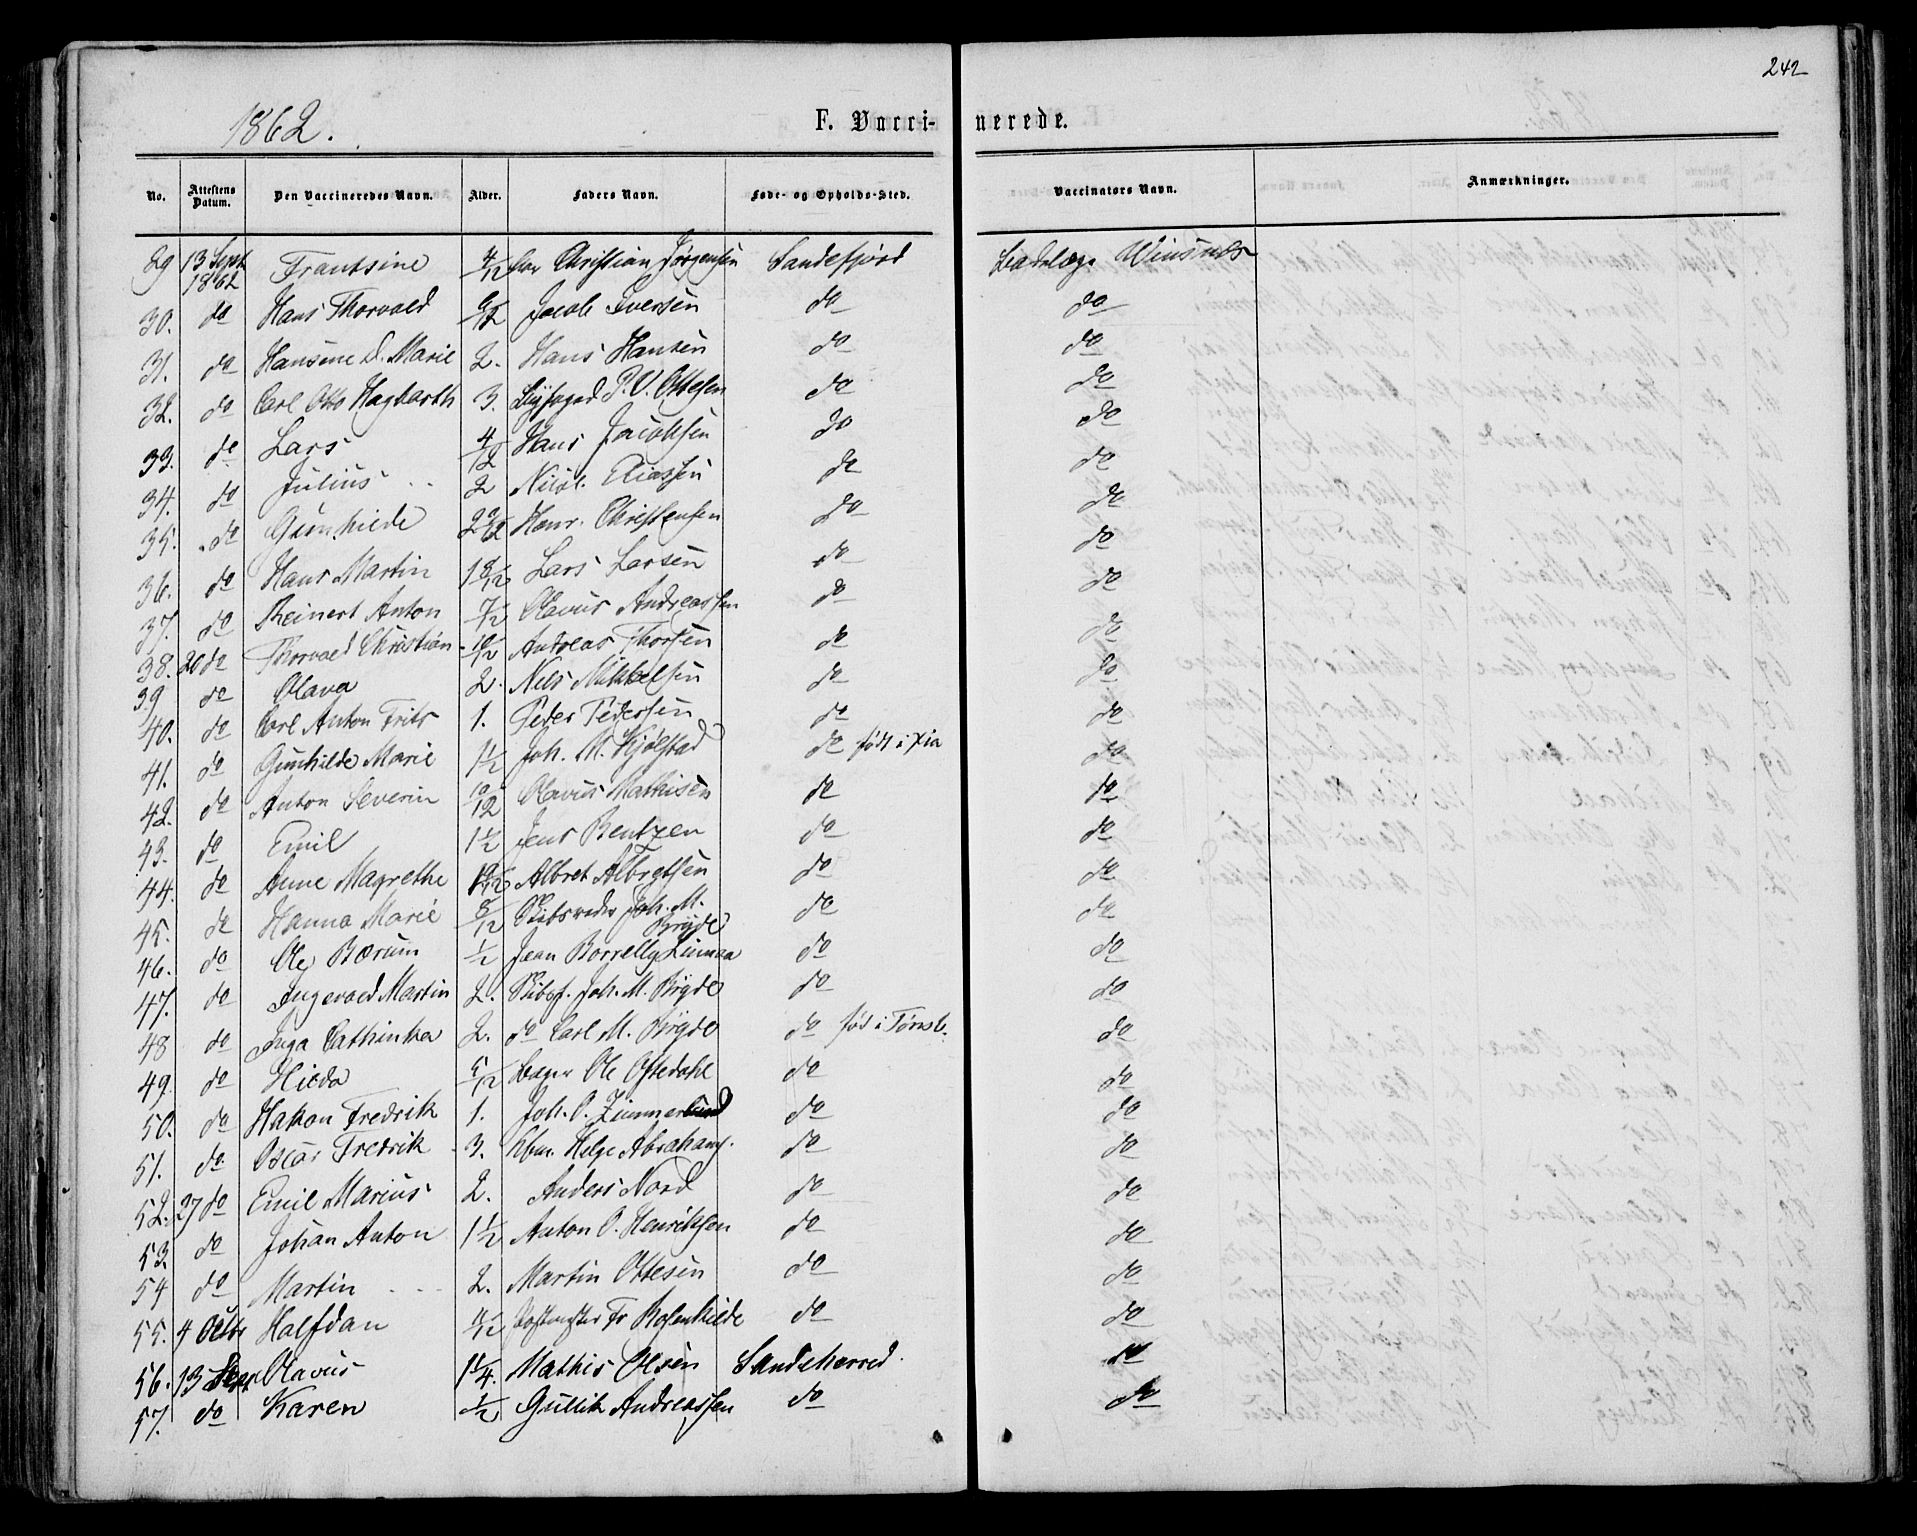 242
1862.
F. Vacci- nerede.
No. Attestens Datum. Den Vaccineredes Navn. Alder. Faders Navn. Føde- og Opholds-Sted. Vaccinators Navn. Anmærkninger.
29 13 Sept 1862 Frantsine 4/12 Christian Jørgensen Sandefjord Badelæge Winsnes
30. do Hans Thorvald 6/12 Jacob Iversen do do
31. do Hansine D. Marie 2. Hans Hansen do do
32. do Carl Otto Hagbarth 3. Byfoged P. V. Ottesen do do
33. do Lars 4/12 Hans Jacobsen do do
34. do Julius 2 Nicol. Eliassen do do
35. do Gunhilde 2 Henr. Christensen do do
36. do Hans Martin 1 8/12 Lars Larsen do do
37. do Reinert Anton 7/12 Olavus Andreassen do do
38. 20 do Thorvald Christian 10/12 Andreas Thorsen do do
39 do Olava 2. Nils Mikkelsen do do
40. do Carl Anton Frits 1. Peder Pedersen do do
41. do Gunhilde Marie 1 1/2 Joh. M. Kjølstad do født i Xia do
42. do Anton Severin 10/12 Olavus Mathisen do do
43. do Emil 1 1/2 Jens Bentzen do do
44. do Anne Magrethe Albret Albrgtsen do do
45. do Hanna Marie 8/12 Skibsreder Joh. M. Bryde do do
46. do Ole Bærum 1/2 Jean Borrelly Linnaa do do
47. do Ingevald Martin 2. Skibsf. Joh. M. Bryde do do
48 do Inga Cathinka 2. do Carl M. Bryde do fød i Tønsb. do
49. do Hilda 5/12 Bager Ole Oftedahl do do
50. do Hakon Fredrik 1. Joh. O. Zimmerlund do do
51. do Oscar Fredrik 3. Kbm. Helge Abrahams. do do
52. 27 do Emil Marius 2. Anders Nord do do
53. do Johan Anton 1 1/2 Anton O. Henriksen do do
54 do Martin 2. Martin Ottesen do do
55. 4 Octbr Halfdan 4/12 Postmester Fr Rosenkilde do do
56. 13 Sept Olavus 1 1/4. Mathis Olsen Sandeherred. do
57. do Karen 1/2 Gullik Andreassen do do